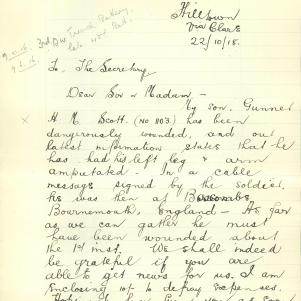 Hilltown
Via Clare
22/10/18.
3rd Div Trench Battery
late 43rd Batt.
To. The Secretary
Dear Sir or Madam -
My son. Gunner
H M. Scott. (No 803) has been
dangerously wounded, and our
latest information states that he
has had his left leg & arm
amputated - In a cable
message signed by the soldier.
he was then at Boscombe
Bournemouth, England - As far
as we can gather he must
have been wounded about
the 1st inst. We shall indeed
be grateful if you are
able to get news for us. I am
enclosing 10/- to defray expenses.